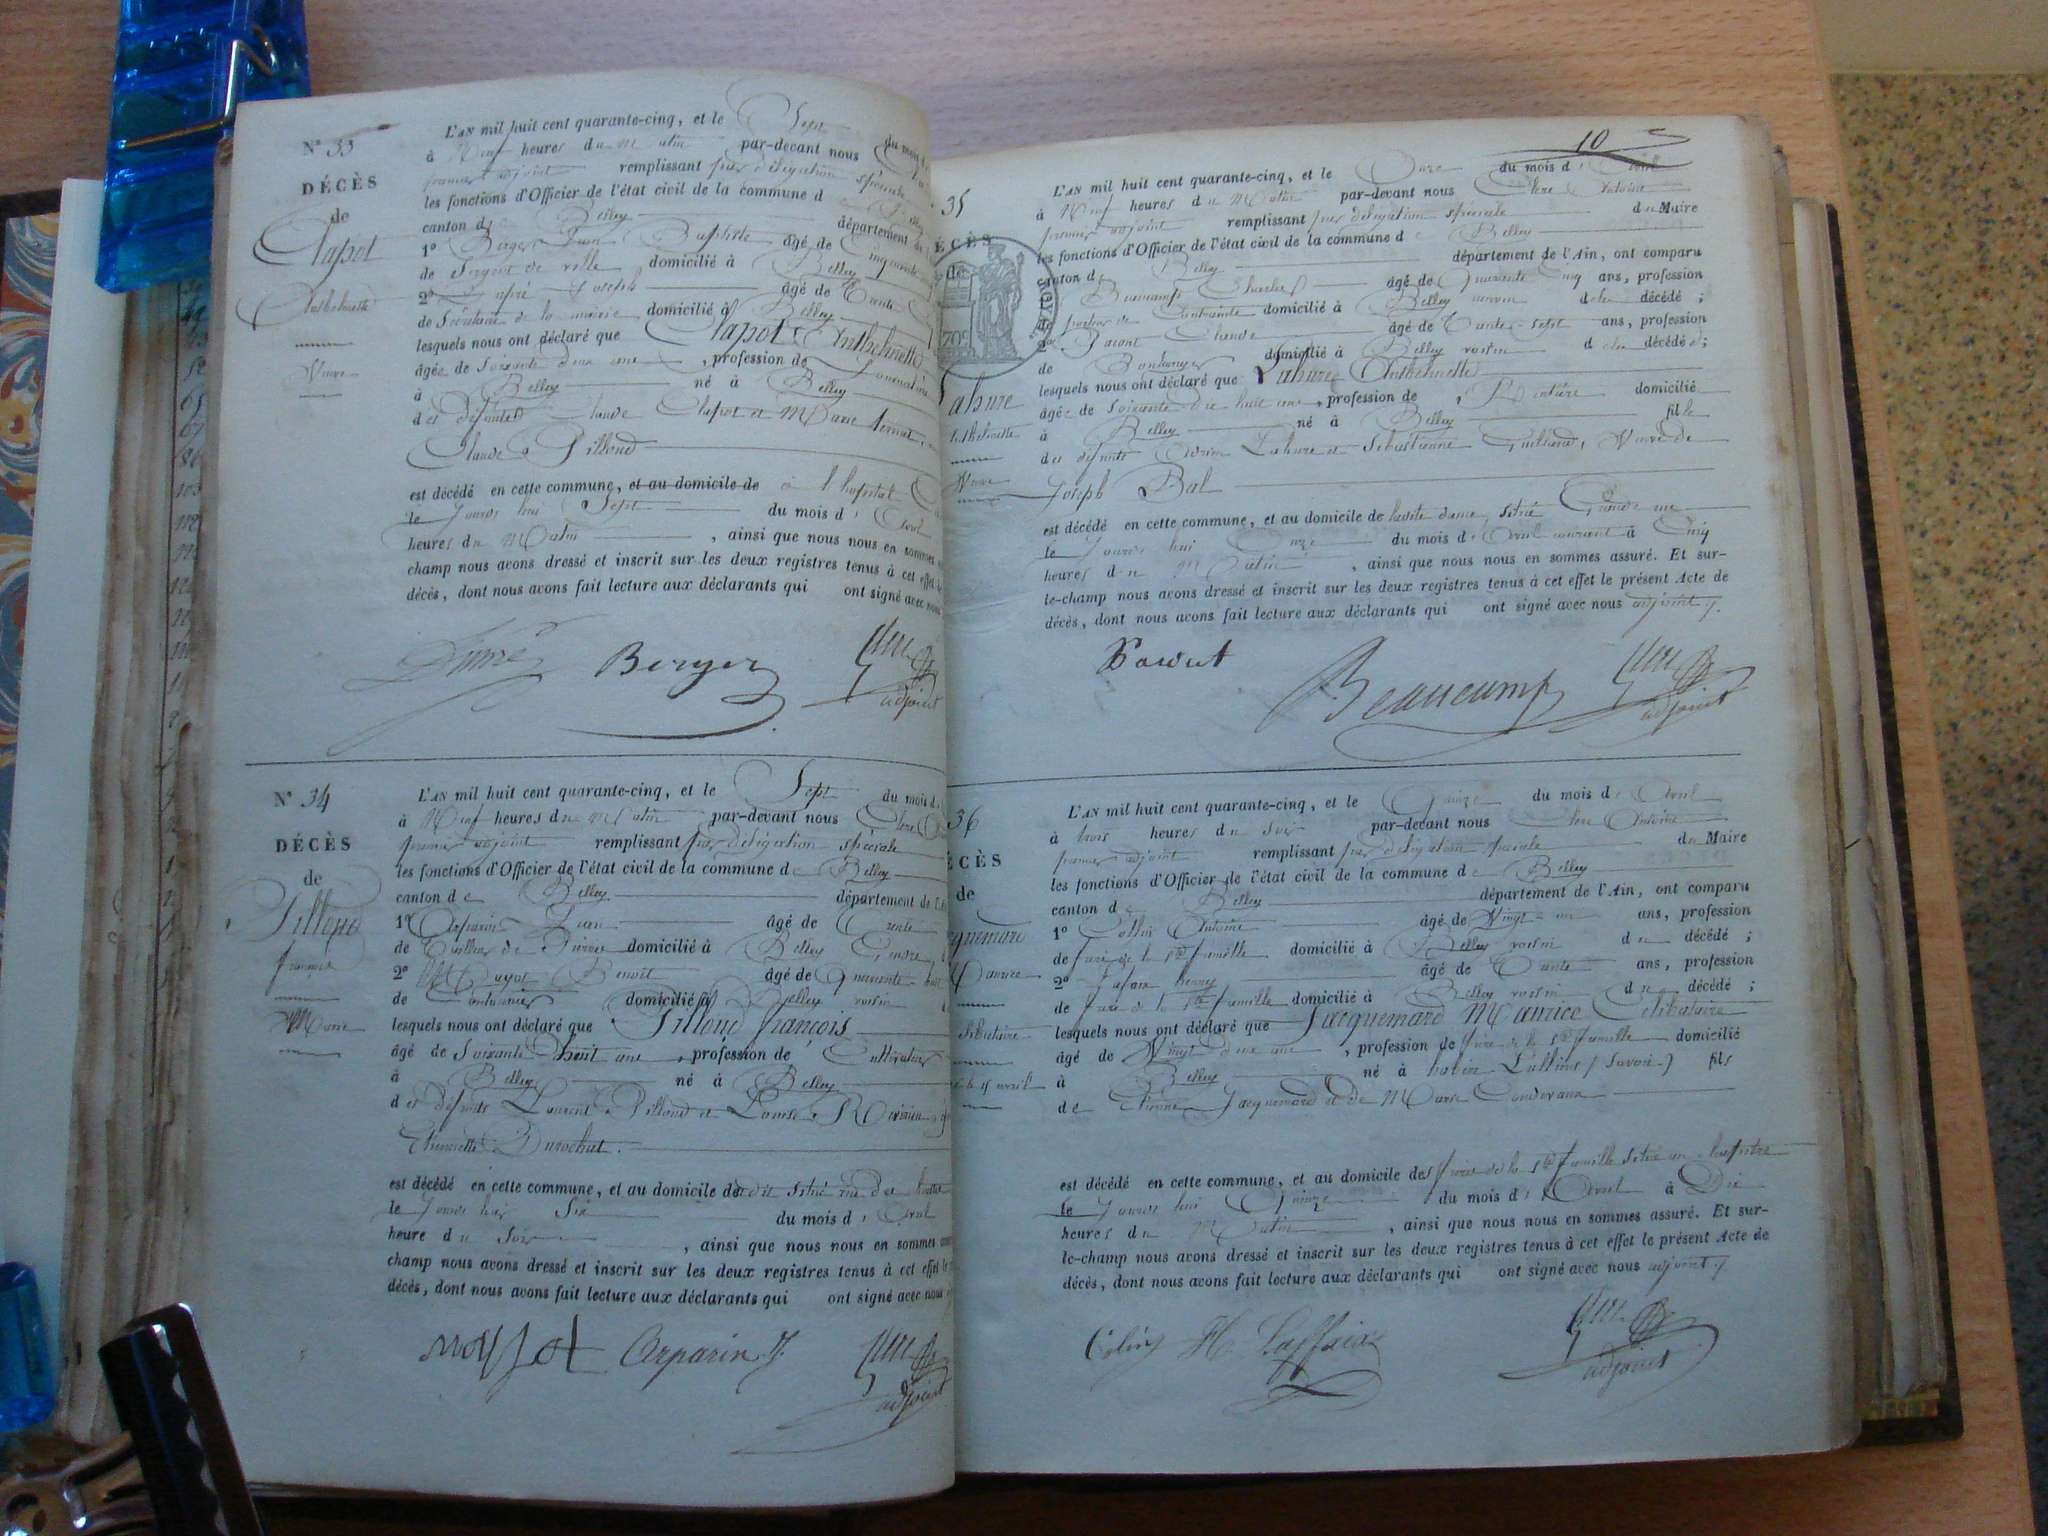 N° 33
DÉCÈS
de
Clapot
Anthelmette
Veuve
L'AN mil huit cent quarante-cinq, et le Sept du mois d
à Neuf heures du Matin par-devant nous
premier adjoint remplissant par délégation spéciale
les fonctions d'Officier de l'état civil de la commune de Belley
canton de Belley département de
1° Berger Jean Baptiste âgé de Cinquante
de Sergent de ville domicilié à Belley
2° Dupré Joseph âgé de Trente
de Secrétaire de la mairie domicilié à Belley
lesquels nous ont déclaré que Clapot Anthelmette
âgée de Soixante deux ans, profession de Journalière
à Belley né à Belley
des défunts Claude Clapot et Marie
Claude Pilloud
est décédé en cette commune, et au domicile de à l'hopital
le Jourd'hui Sept du mois d' Avril
heures du Matin, ainsi que nous nous en sommes
champ nous avons dressé et inscrit sur les deux registres tenus à cet effet
décès, dont nous avons fait lecture aux déclarants qui ont signé avec nous
Berger
adjoint
N° 34
DÉCÈS
de
Pilloud
françois
Marié
L'AN mil huit cent quarante-cinq, et le Sept du mois d
à Neuf heures du Matin par-devant nous Clerc
premier adjoint remplissant par délégation spéciale
les fonctions d'Officier de l'état civil de la commune de Belley
canton de Belley département de l'
1° Arparin Jean âgé de Trente
de Tailleur de Pierre domicilié à Belley Gendre
2° Benoit âgé de Quarante huit
de Cordonnier domicilié à Belley voisin
lesquels nous ont déclaré que Pilloud françois
âgé de Soixante huit ans, profession de Cultivateur
à Belley né à Belley
des défunts Laurent Pilloud et Louise
est décédé en cette commune, et au domicile de situé rue des
le Jour d'hier Six du mois d' Avril
heure du Soir, ainsi que nous nous en sommes
champ nous avons dressé et inscrit sur les deux registres tenus à cet effet le
décès, dont nous avons fait lecture aux déclarants qui ont signé avec nous
Arparin J.
adjoint
10
35
DÉCÈS
de
Lahure
Anthelmette
Veuve
L'AN mil huit cent quarante-cinq, et le Onze du mois d' Avril
à Neuf heures du Matin par-devant nous Clerc Antoine
premier adjoint remplissant par délégation spéciale du Maire
les fonctions d'Officier de l'état civil de la commune de Belley
canton de Belley département de l'Ain, ont comparu
Beaucamp Charles âgé de Quarante Cinq ans, profession
de porteur de Contrainte domicilié à Belley voisin de la décédé ;
2° Claude âgé de Trente-sept ans, profession
de Boulanger domicilié à Belley voisin de la décédé ;
lesquels nous ont déclaré que Lahure Anthelmette
âgée de Soixante dix huit ans, profession de Rentière domicilié
à Belley né à Belley fille
des défunts Lahure et Sébastienne Guilland, Veuve de
Joseph Bal
est décédé en cette commune, et au domicile de ladite dame, situé Grande rue
le Jourd'hui Onze du mois d' Avril courant à Cinq
heures du Matin, ainsi que nous nous en sommes assuré. Et sur-
le-champ nous avons dressé et inscrit sur les deux registres tenus à cet effet le présent Acte de
décès, dont nous avons fait lecture aux déclarants qui ont signé avec nous adjoint
Beaucamp
adjoint
36
DÉCÈS
de
Jacquemard
Maurice
Célibataire
le 15 avril
L'AN mil huit cent quarante-cinq, et le Quinze du mois d' Avril
à trois heures du Soir par-devant nous Clerc Antoine
premier adjoint remplissant par délégation spéciale du Maire
les fonctions d'Officier de l'état civil de la commune de Belley
canton de Belley département de l'Ain, ont comparu
1° Collin Antoine âgé de Vingt-un ans, profession
de frère de la Ste famille domicilié à Belley voisin du décédé ;
2° henry âgé de Trente ans, profession
de frère de la Ste famille domicilié à Belley voisin du décédé ;
lesquels nous ont déclaré que Jacquemard Maurice Célibataire
âgé de Vingt deux ans, profession de frère de la Ste famille domicilié
à Belley né à Lullins (Savoie) fils
de Etienne Jacquemard et de Marie
est décédé en cette commune, et au domicile des frères de la Ste famille situé au
le Jourd'hui Quinze du mois d' Avril à Dix
heures du Matin, ainsi que nous nous en sommes assuré. Et sur-
le-champ nous avons dressé et inscrit sur les deux registres tenus à cet effet le présent Acte de
décès, dont nous avons fait lecture aux déclarants qui ont signé avec nous adjoint
H. Laffaix
adjoint